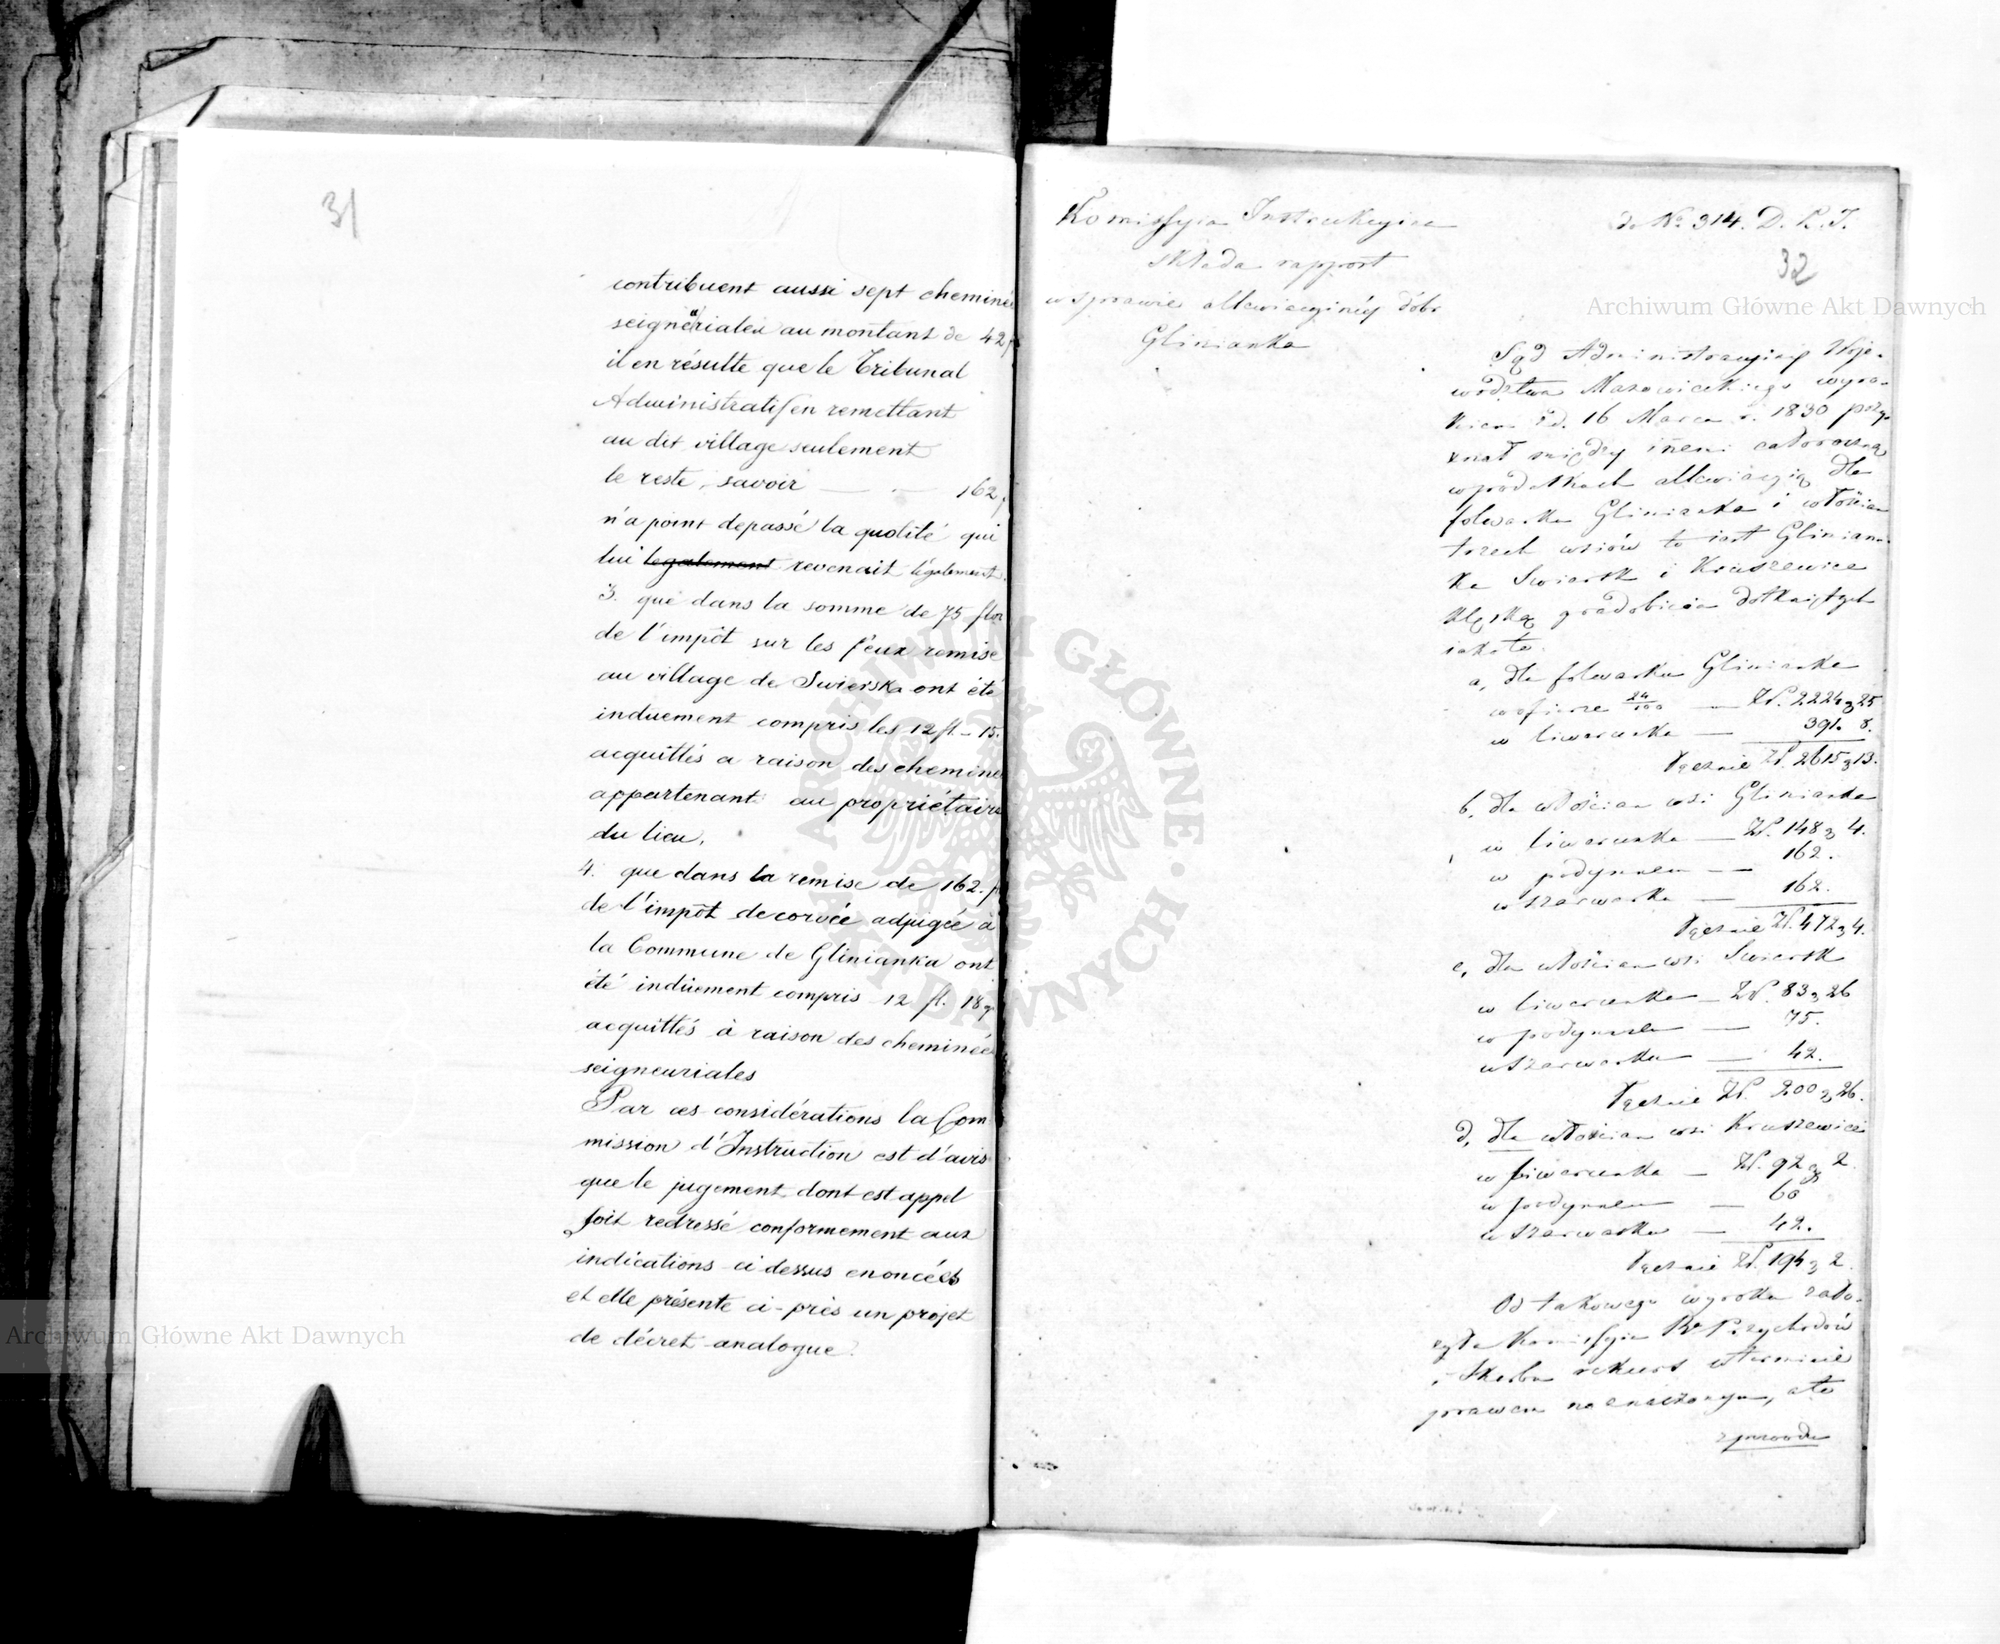 31
contribuent aussi sept cheminé
seigneuriales au montant de 42 f
il en résulte que le Tribunal
Administratif en remettant
au dit village seulement
le reste, savoir — — 162 f
n'a point depassé la quotité qui
lui legalement revenait légalement.
3. que dans la somme de 75 flor
de l'impôt sur les feux remise
au village de Swierska ont été
induement compris les 12 fl. - 15.
acquittés a raison des cheminé
appartenant au propriétaire
du lieu.
4. que dans la remise de 162. f
de l'impôt de corvée adjugée à
la Commune de Glinianka ont
été indûement compris 12 fl. 18 g
acquittés à raison des cheminée
seigneuriales
Par ces considérations la Com
mission d'Instruction est d'avis
que le jugement dont est appel
soit redressé conformement aux
indications ci dessus enoncées
et elle présente ci-près un projet
de décret analogue.
Kommissyia Instrukcyina
składa rapport
w sprawie allewiacyinéy dóbr
Glinianka
do No 314. D. K. I.
32
Sąd Administracyiny Woje-
wództwa Mazowieckiego wyro-
kiem z d. 16 Marca r. 1830 przy-
znał między innemi całoroczną
w podatkach allewiacyią dla
folwarku Glinianka i włościan
trzech wsiów to iest Glinian-
ka Swiersk i Kruszewiec
klęską gradobicia dotkniętych
iako to.
a, dla folwarku Glinianka
w ofierze 24/100 — Zł. 2224 g 25
w liwerunku — 391. 8.
Łącznie Zł. 2615 g 13.
b, dla włościan wsi Glinianka
w liwerunku — Zł. 148 g 4.
w podymnem — 162.
w szarwarku — 162.
Łącznie Zł. 472 g 4.
c, dla włościan wsi Swiersk
w liwerunku — Zł. 83 g 26
w podymnem — 75.
w szarwarku — 42.
Łącznie Zł. 200 g 26.
d, dla włościan wsi Kruszewiec
w liwerunku — Zł. 92 g 2.
w podymnem — 60
w szarwarku — 42.
Łącznie Zł. 194 g 2.
Od takowego wyroku zało-
żyła Kommissyia Rw Przychodów
i Skarbu rekurs w terminie
prawem naznaczonym, a to
z powodu
Archiwum Główne Akt Dawnych
Archiwum Główne Akt Dawnych
ARCHIWUM GŁÓWNE AKT DAWNYCH